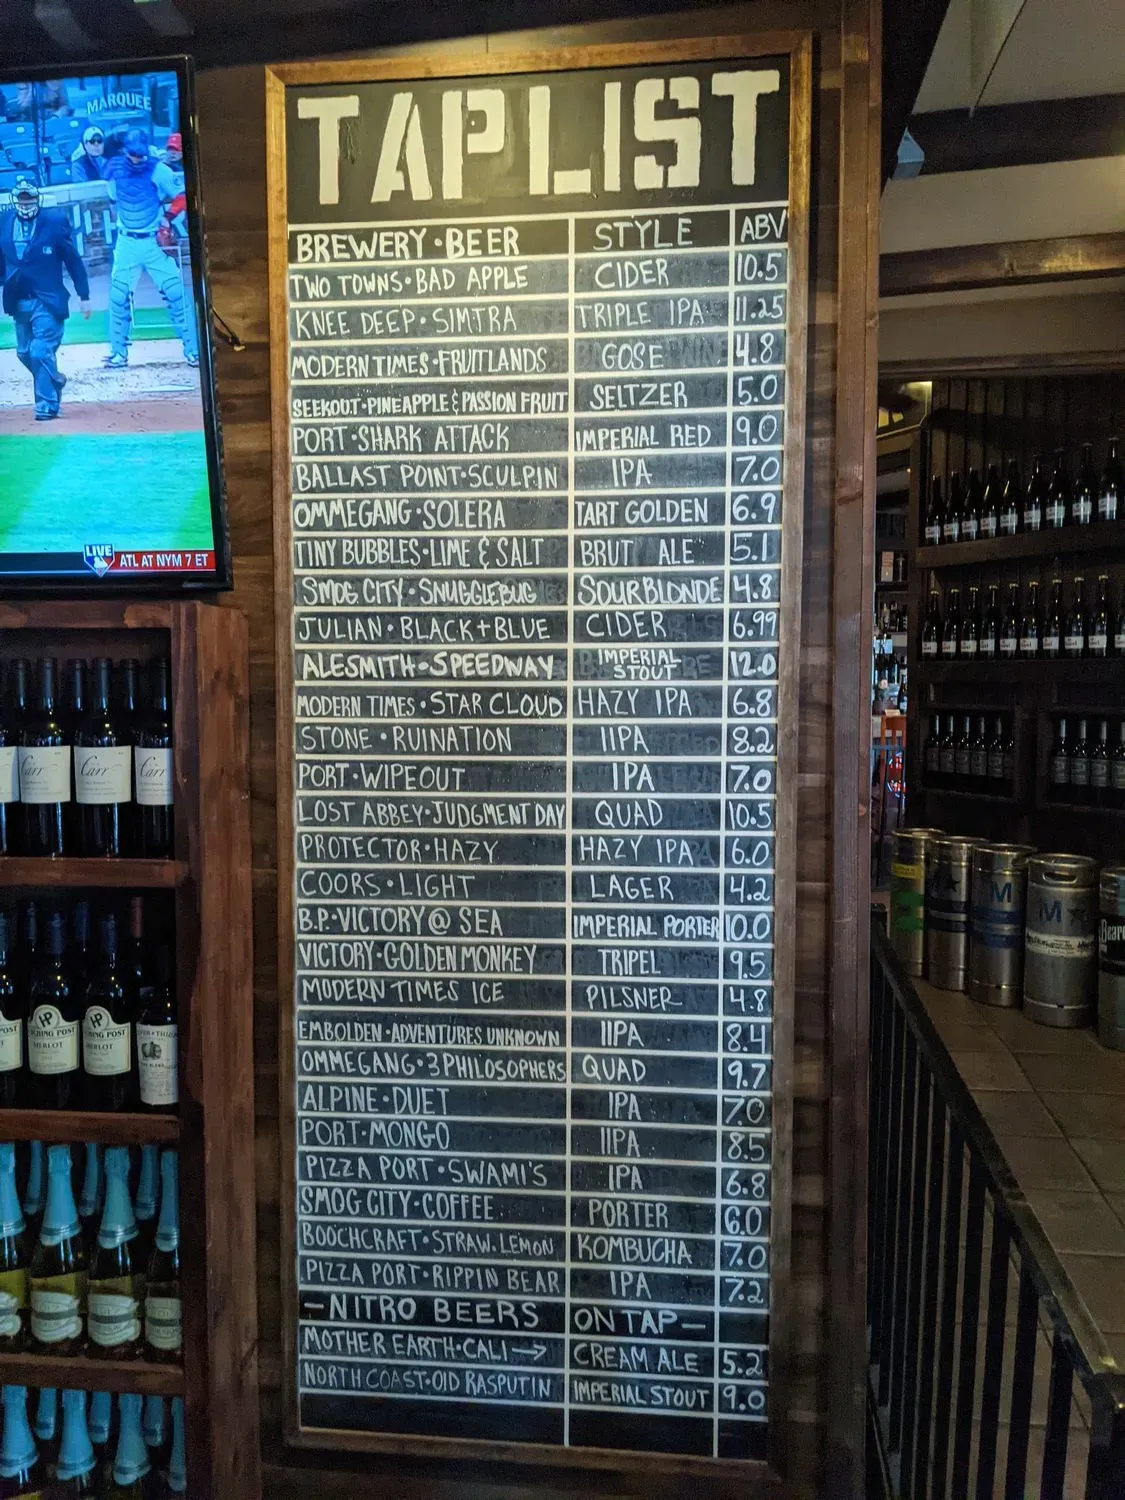 MARQUEE
LIVE ATL AT NYM 7 ET
TAPLIST
BREWERY • BEER STYLE ABV
TWO TOWNS • BAD APPLE CIDER 10.5
KNEE DEEP • SIMTRA TRIPLE IPA 11.25
MODERN TIMES • FRUITLANDS GOSE 4.8
SEEKOUT • PINEAPPLE & PASSION FRUIT SELTZER 5.0
PORT • SHARK ATTACK IMPERIAL RED 9.0
BALLAST POINT • SCULPIN IPA 7.0
OMMEGANG • SOLERA TART GOLDEN 6.9
TINY BUBBLES • LIME & SALT BRUT ALE 5.1
SMOG CITY • SNUGGLEBUG SOUR BLONDE 4.8
JULIAN • BLACK + BLUE CIDER 6.99
ALESMITH • SPEEDWAY IMPERIAL STOUT 12.0
MODERN TIMES • STAR CLOUD HAZY IPA 6.8
STONE • RUINATION IIPA 8.2
PORT • WIPEOUT IPA 7.0
LOST ABBEY • JUDGMENT DAY QUAD 10.5
PROTECTOR • HAZY HAZY IPA 6.0
COORS • LIGHT LAGER 4.2
B.P. • VICTORY @ SEA IMPERIAL PORTER 10.0
VICTORY • GOLDEN MONKEY TRIPEL 9.5
MODERN TIMES ICE PILSNER 4.8
EMBOLDEN • ADVENTURES UNKNOWN IIPA 8.4
OMMEGANG • 3 PHILOSOPHERS QUAD 9.7
ALPINE • DUET IPA 7.0
PORT • MONGO IIPA 8.5
PIZZA PORT • SWAMI'S IPA 6.8
SMOG CITY • COFFEE PORTER 6.0
BOOCHCRAFT • STRAW. LEMON KOMBUCHA 7.0
PIZZA PORT • RIPPIN BEAR IPA 7.2
— NITRO BEERS ON TAP —
MOTHER EARTH • CALI → CREAM ALE 5.2
NORTH COAST • OLD RASPUTIN IMPERIAL STOUT 9.0
Carr Carr Carr
HP HP
POST POST
MERLOT MERLOT
M M